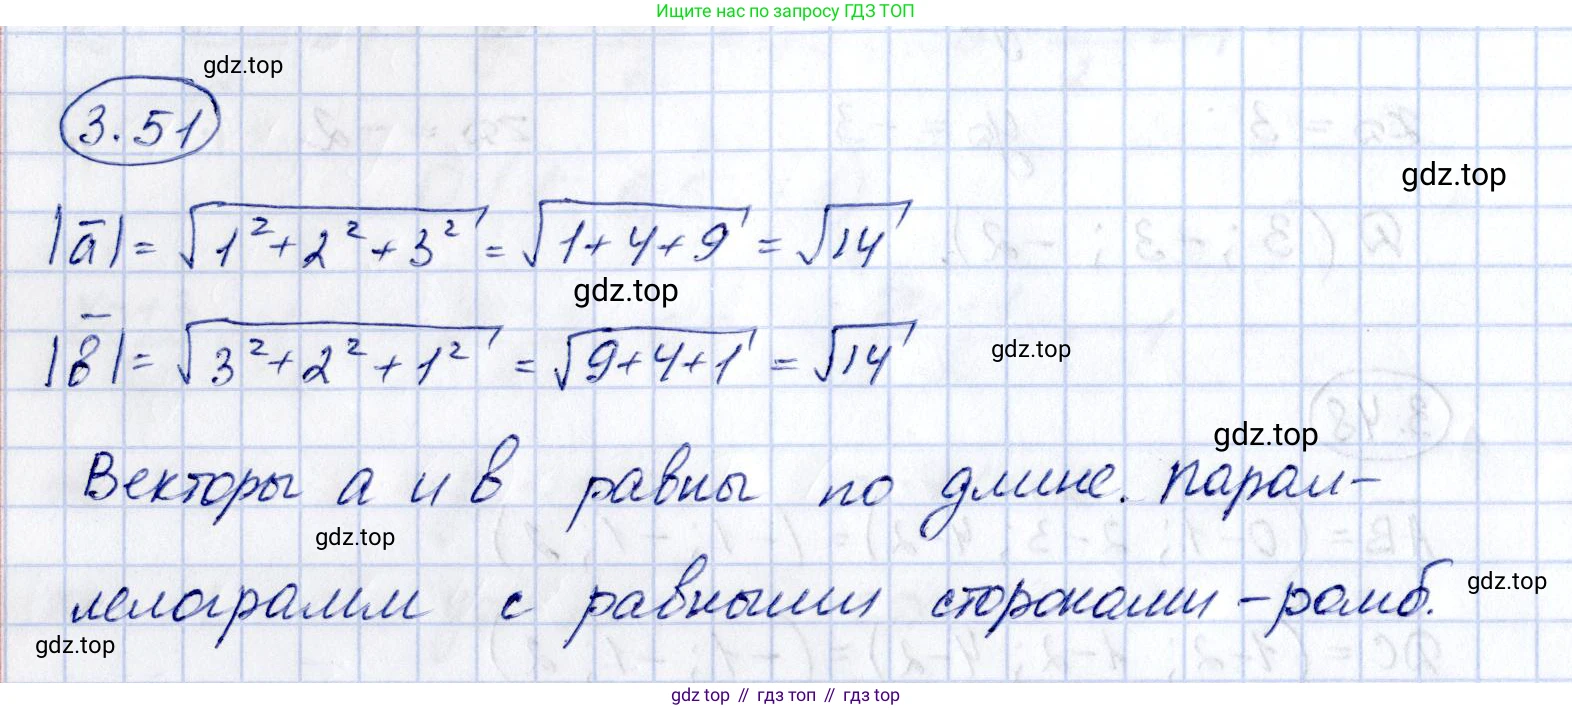 Ищите нас по запросу ГДЗ ТОП
gdz.top
3.51
gdz.top
|a̅| = √(1² + 2² + 3²) = √(1 + 4 + 9) = √14
gdz.top
|b̅| = √(3² + 2² + 1²) = √(9 + 4 + 1) = √14
gdz.top
gdz.top
Векторы a и b равны по длине. Парал-
gdz.top
лелограмм с равными сторонами – ромб.
gdz.top
gdz.top
gdz.top // гдз топ // гдз top